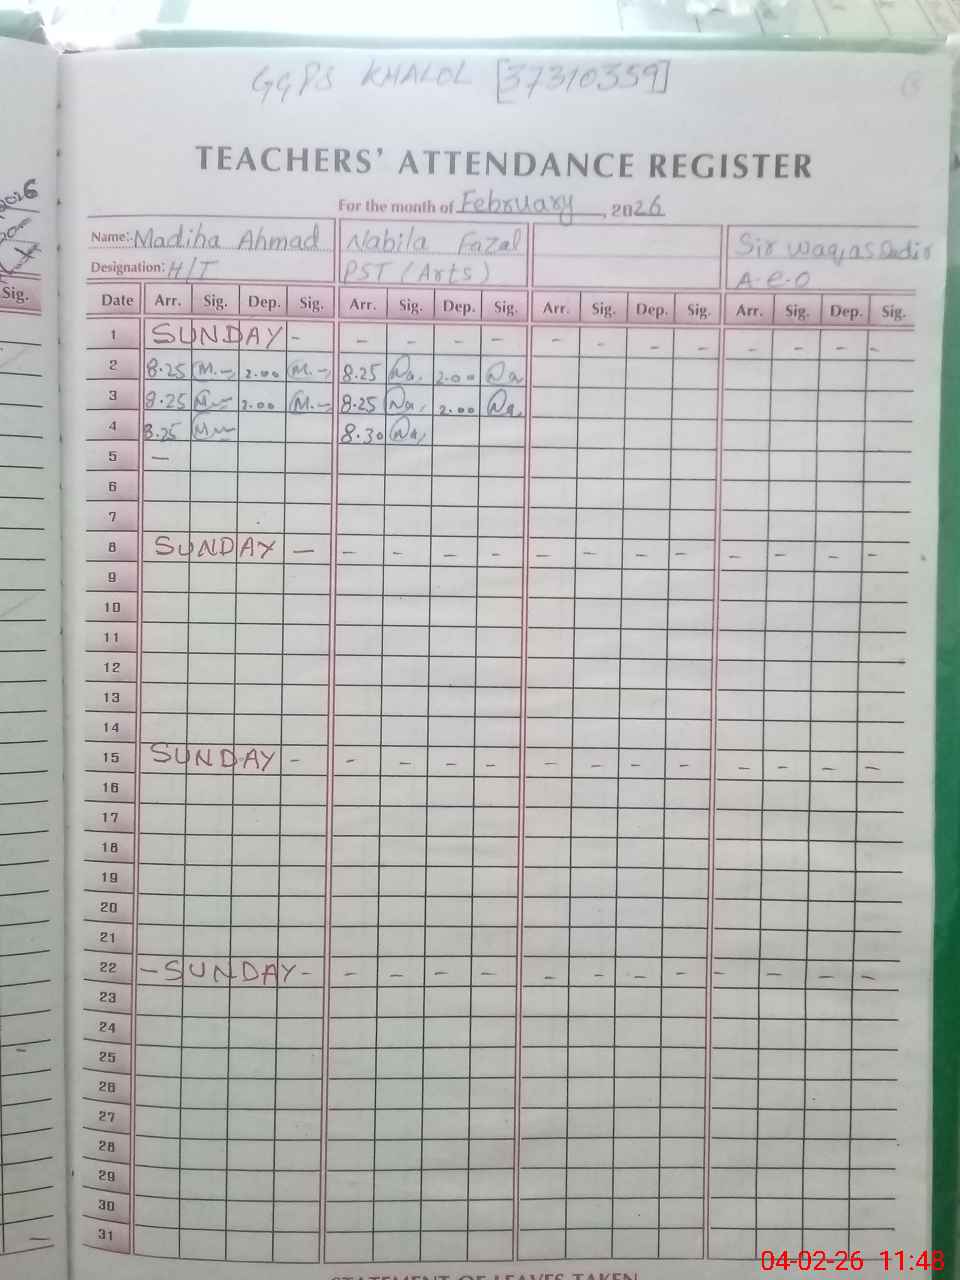 GGPS KHALOL [37310359]
TEACHERS' ATTENDANCE REGISTER
For the month of February, 2026
Name:- Madiha Ahmad Nabila Fazal Sir Waqas
Designation: H/T PST (Arts) A.E.O
Sig. Date Arr. Sig. Dep. Sig. Arr. Sig. Dep. Sig. Arr. Sig. Dep. Sig. Arr. Sig. Dep. Sig.
1 SUNDAY - - - - - - - - - - - - -
2 8.25 2.00 8.25 Na. 2.00 Na
3 8.25 2.00 8.25 Na. 2.00 Na.
4 8.25 8.30 Na.
5 -
6
7
8 SUNDAY - - - - - - - - - - - - -
9
10
11
12
13
14
15 SUNDAY - - - - - - - - - - - - -
16
17
18
19
20
21
22 - SUNDAY - - - - - - - - - - - - -
23
24
25
26
27
28
29
30
31
STATEMENT OF LEAVES TAKEN
04-02-26 11:48